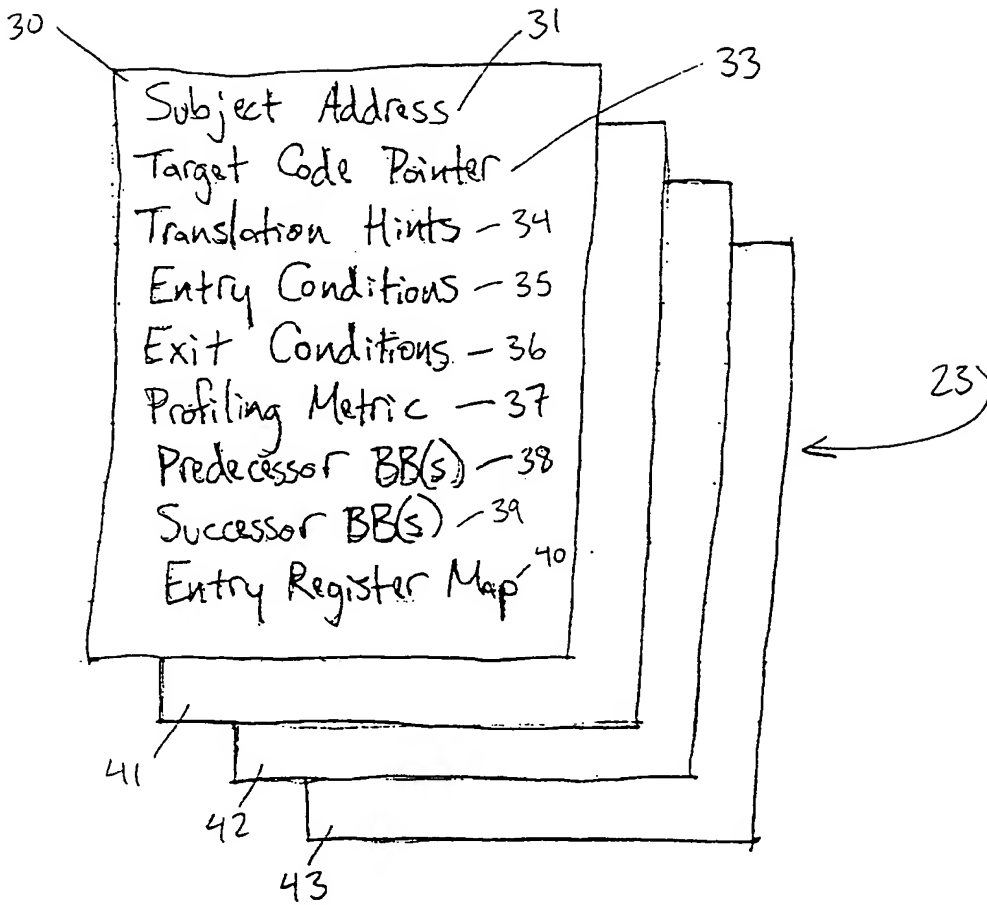 30
31
33
Subject Address
Target Code Pointer
Translation Hints - 34
Entry Conditions - 35
Exit Conditions - 36
Profiling Metric - 37
23
Predecessor BB(s) - 38
Successor BB(s) - 39
Entry Register Map - 40
41
42
43